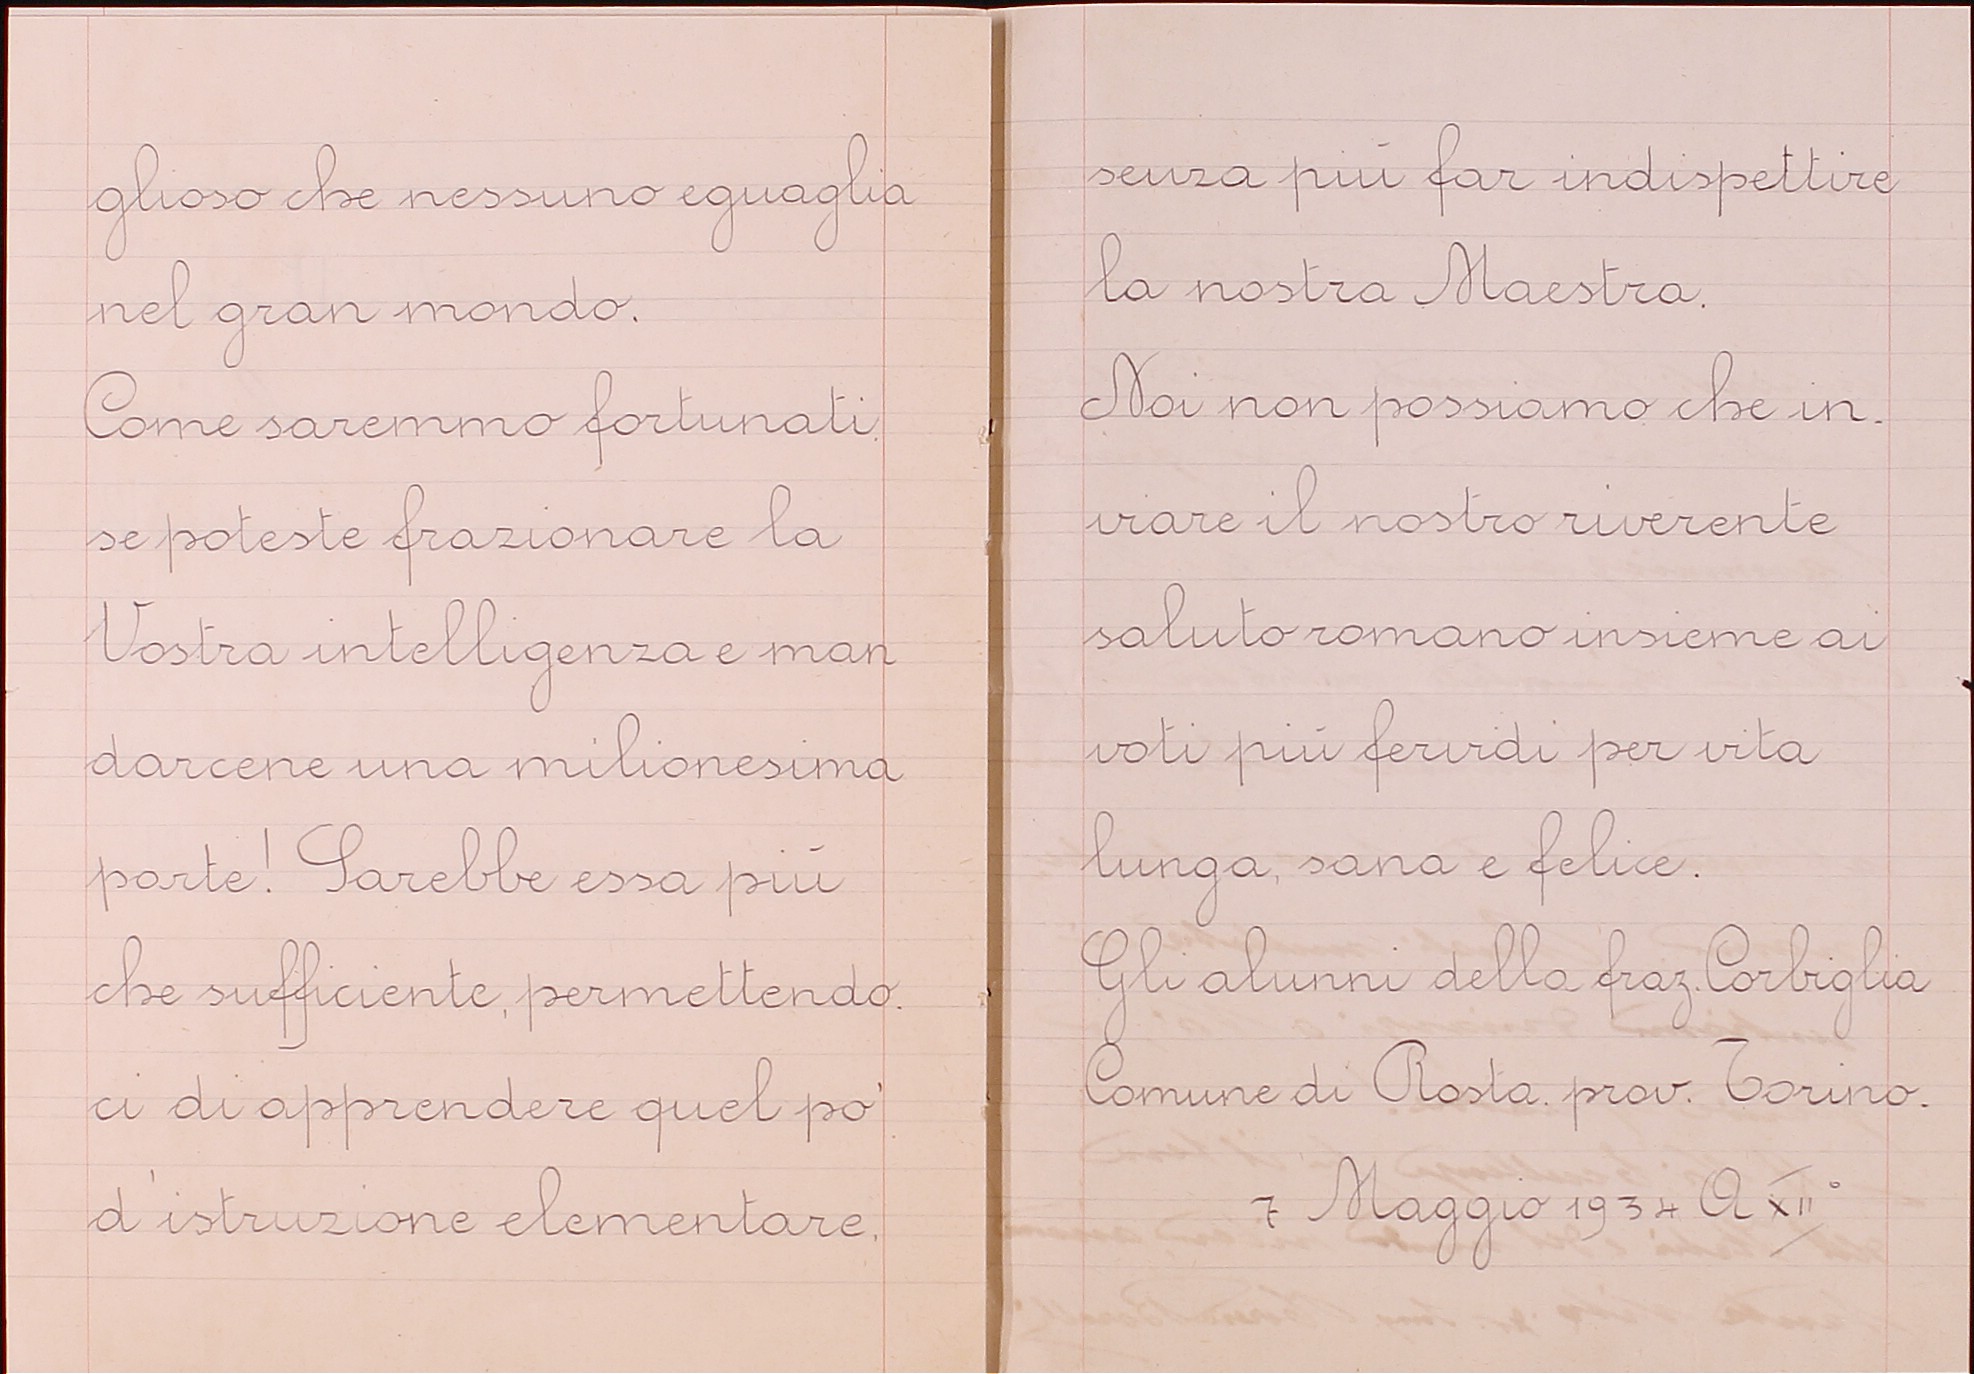 glioso che nessuno eguaglia
nel gran mondo.
Come saremmo fortunati
se poteste frazionare la
Vostra intelligenza e man
darcene una milionesima
parte! Sarebbe essa più
che sufficiente, permettendo.
ci di apprendere quel po'
d'istruzione elementare,
senza più far indispettire
la nostra Maestra.
Noi non possiamo che in-
viare il nostro riverente
saluto romano insieme ai
voti più fervidi per vita
lunga, sana e felice.
Gli alunni della fraz. Corbiglia
Comune di Rosta. prov. Torino.
7 Maggio 1934 A XII°